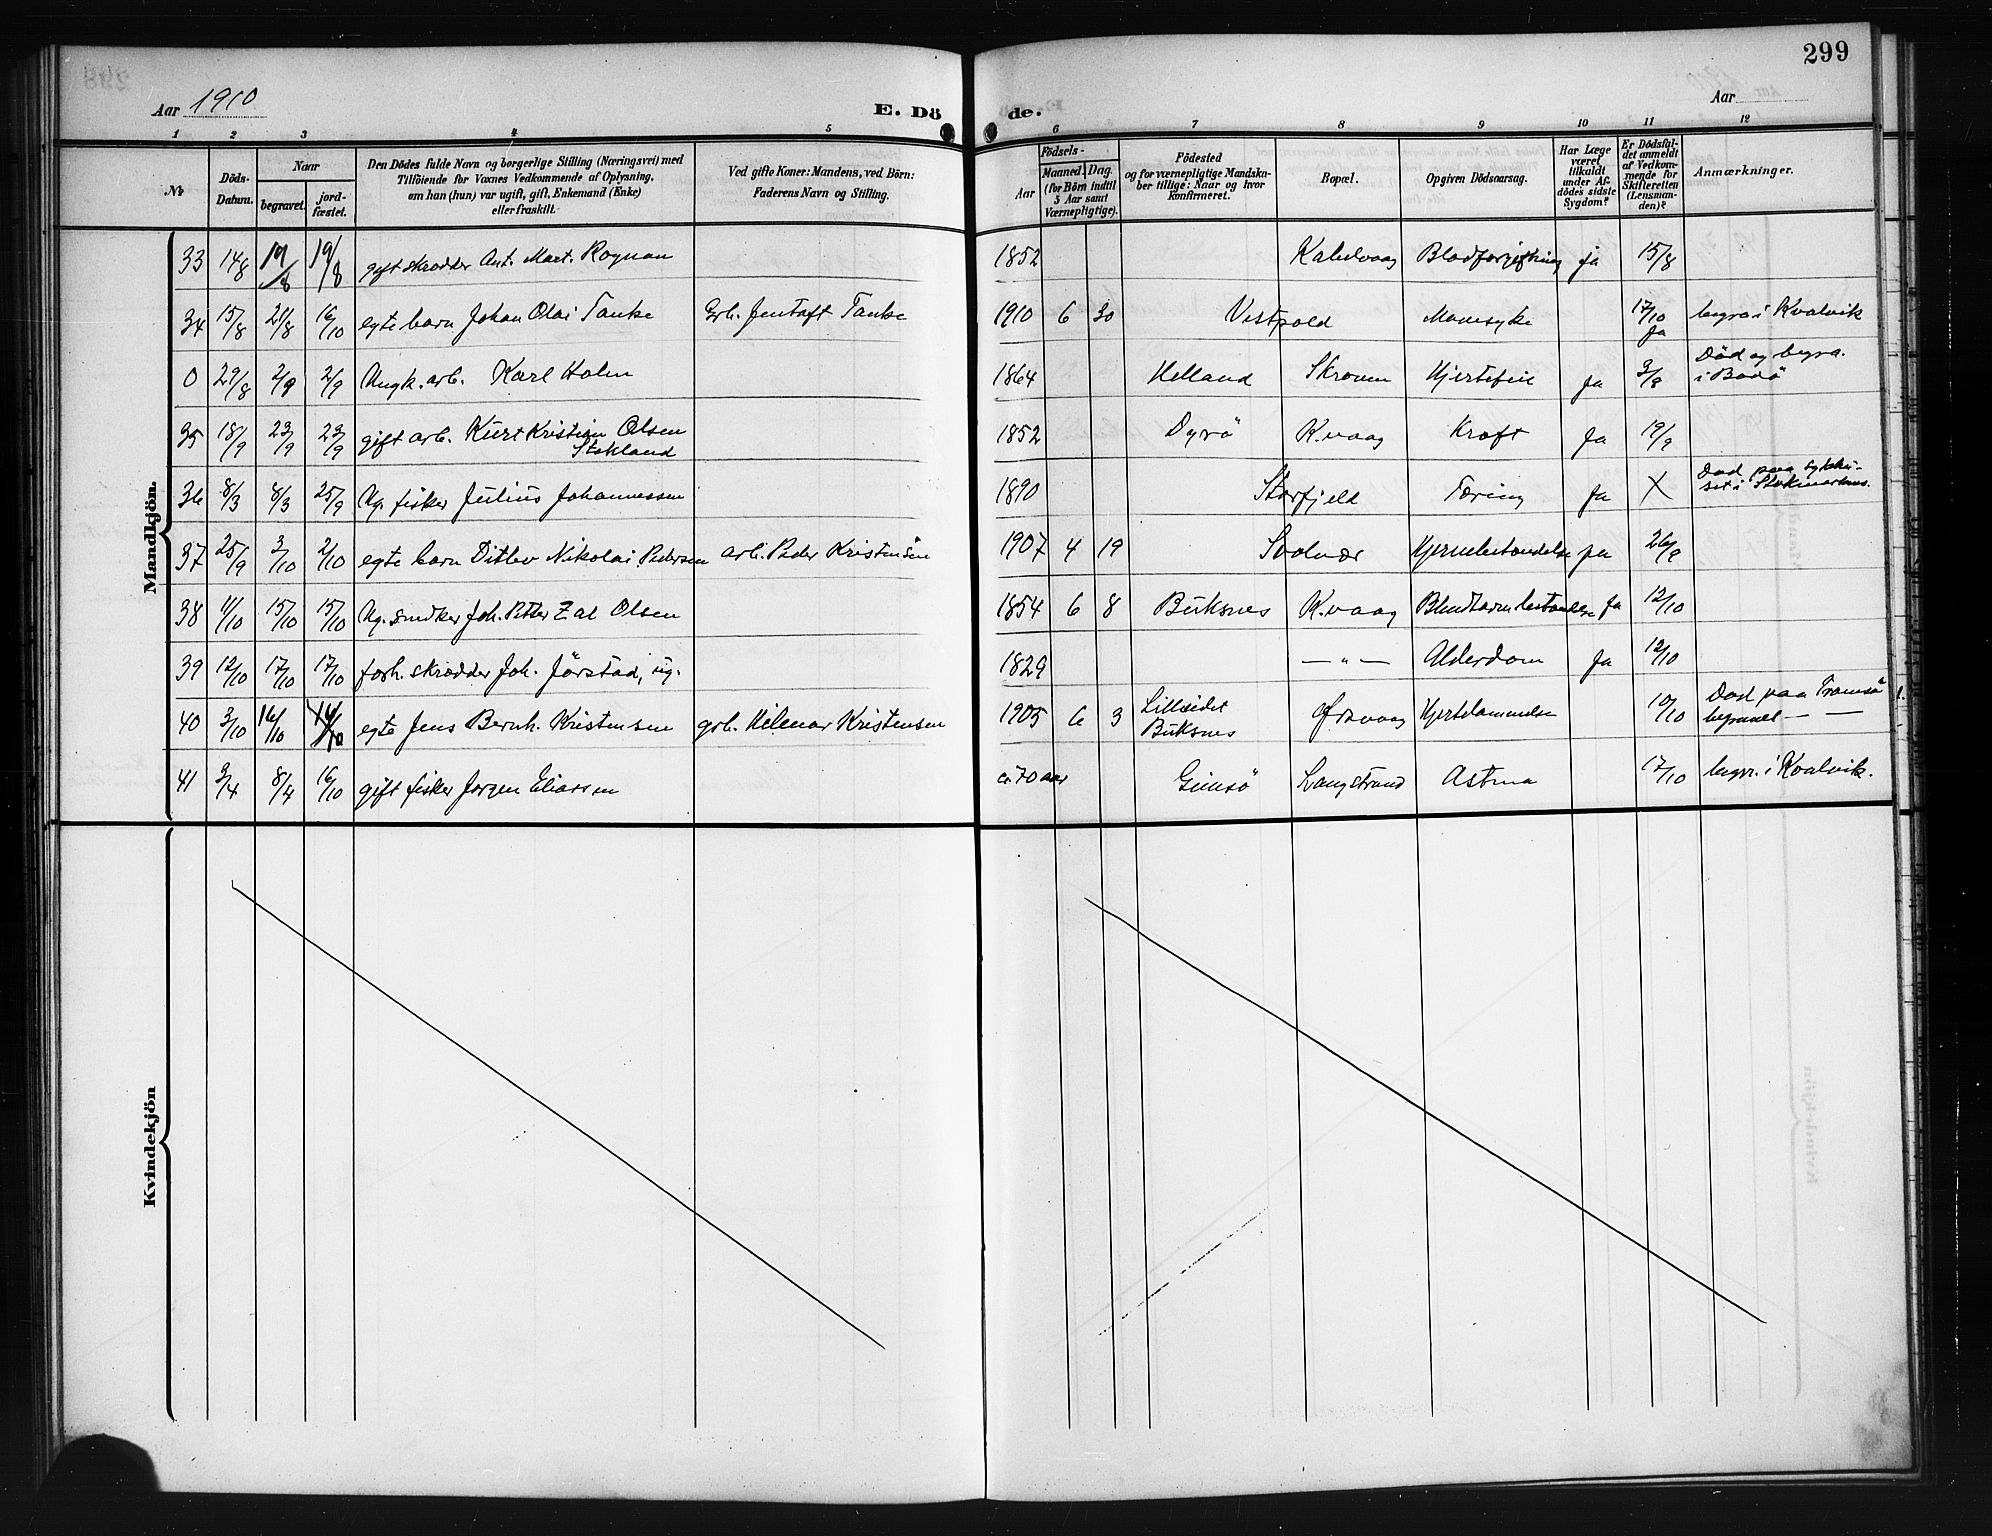 299
Aar 1910
E. Dö
de.
Aar
1 2 3 4 5 6 7 8 9 10 11 12
No
Döds-
Datum.
Naar
begravet.
jord-
fæstet.
Den Dödes fulde Navn og borgerlige Stilling (Næringsvei) med
Tilföiende for Vævnes Vedkommende af Oplysning,
om han (hun) var ugift, gift, Enkemand (Enke)
eller fraskilt.
Ved gifte Koner: Mandens, ved Börn:
Faderens Navn og Stilling.
Födsels-
Aar
Maaned. Dag.
(for Börn indtil
5 Aar samt
Værnepligtige).
Födested
og for værnepligtige Mandska-
ber tillige: Naar og hvor
konfirmeret.
Bopæl.
Opgiven Dödsaarsag.
Har Læge
været
tilkaldt
under Af-
dödes sidste
Sygdom?
Er Dödsfal-
det anmeldt
af Vedkom-
mende for
Skifteretten
(Lensman-
den)?
Anmærkninger.
Mandkjön.
33 14/8 19/8 19/8 gift skrædder Ant. Mart. Rognan 1852 Kabelvaag Blodforgiftning ja 15/8
34 15/8 21/8 16/10 egte barn Johan Olai Tanke Grb. Jentoft Tanke 1910 6 30 Vestpold Mavesyke 17/10 ja begra i Kvalvik
0 29/8 2/9 2/9 Ungk. arb. Karl Holm 1864 Helland Skroven Hjertefeil ja 3/8 Död og begra. i Bodö
35 18/9 23/9 23/9 gift arb. Kurt Kristian Olsen Stokland 1852 Dyrö K.vaag Kræft ja 19/9
36 8/3 8/3 25/9 Ug. fisker Julius Johannessen 1890 Storfjeld Tæring ja X Död paa sykehu-
set i Stokmarknes.
37 25/9 3/10 2/10 egte barn Ditlev Nikolai Pedersen arb. Peder Kristensön 1907 4 19 Svolvær Hjernebetændelse ja 26/9
38 11/10 15/10 15/10 Ug. snedker Joh. Petter Zal Olsen 1854 6 8 Buksnes K.vaag Blindtarmbetændelse ja 12/10
39 12/10 17/10 17/10 forh. skrædder Joh. Jörstad, ug. 1829 — " — Alderdom ja 12/10
40 3/10 16/10 egte Jens Bernh. Kristensen grb. Hilmar Kristensen 1905 6 3 Lilleeidet
Buksnes Ørsvaag Hjertelammelse 10/10 Död paa Tromsö
— —
41 3/4 8/4 16/10 gift fisker Jörgen Eliassen ca 70 aar Gimsö Langstrand Astma 17/10 begr. i Kvalvik.
Kvindekjön